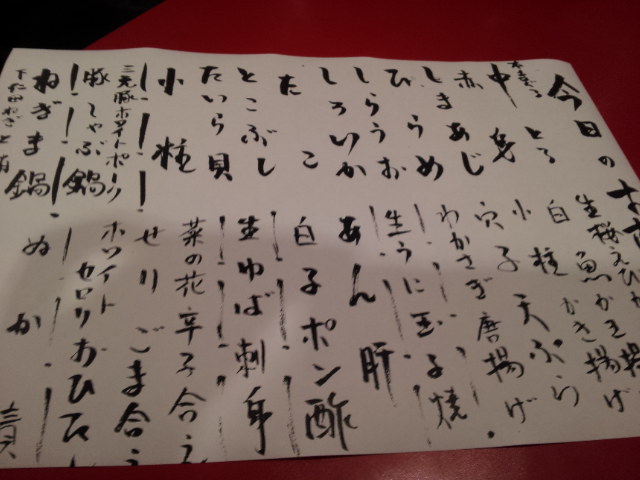 今日のおす
本まぐろ
中とろ
赤身
しまあじ
ひらめ
しらうお
しろいか
たこ
とこぶし
たいら貝
小柱
三元豚ホワイトポーク
豚しゃぶ鍋
ねぎま鍋
下仁田ねぎ
生桜えびかき揚
白魚かき揚げ
小柱天ぷら
穴子
わかさぎ唐揚げ
生うに玉子焼
あん肝
白子ポン酢
生ゆば刺身
菜の花辛子合え
せりごま合え
ホワイト
セロリおひたし
ぬか